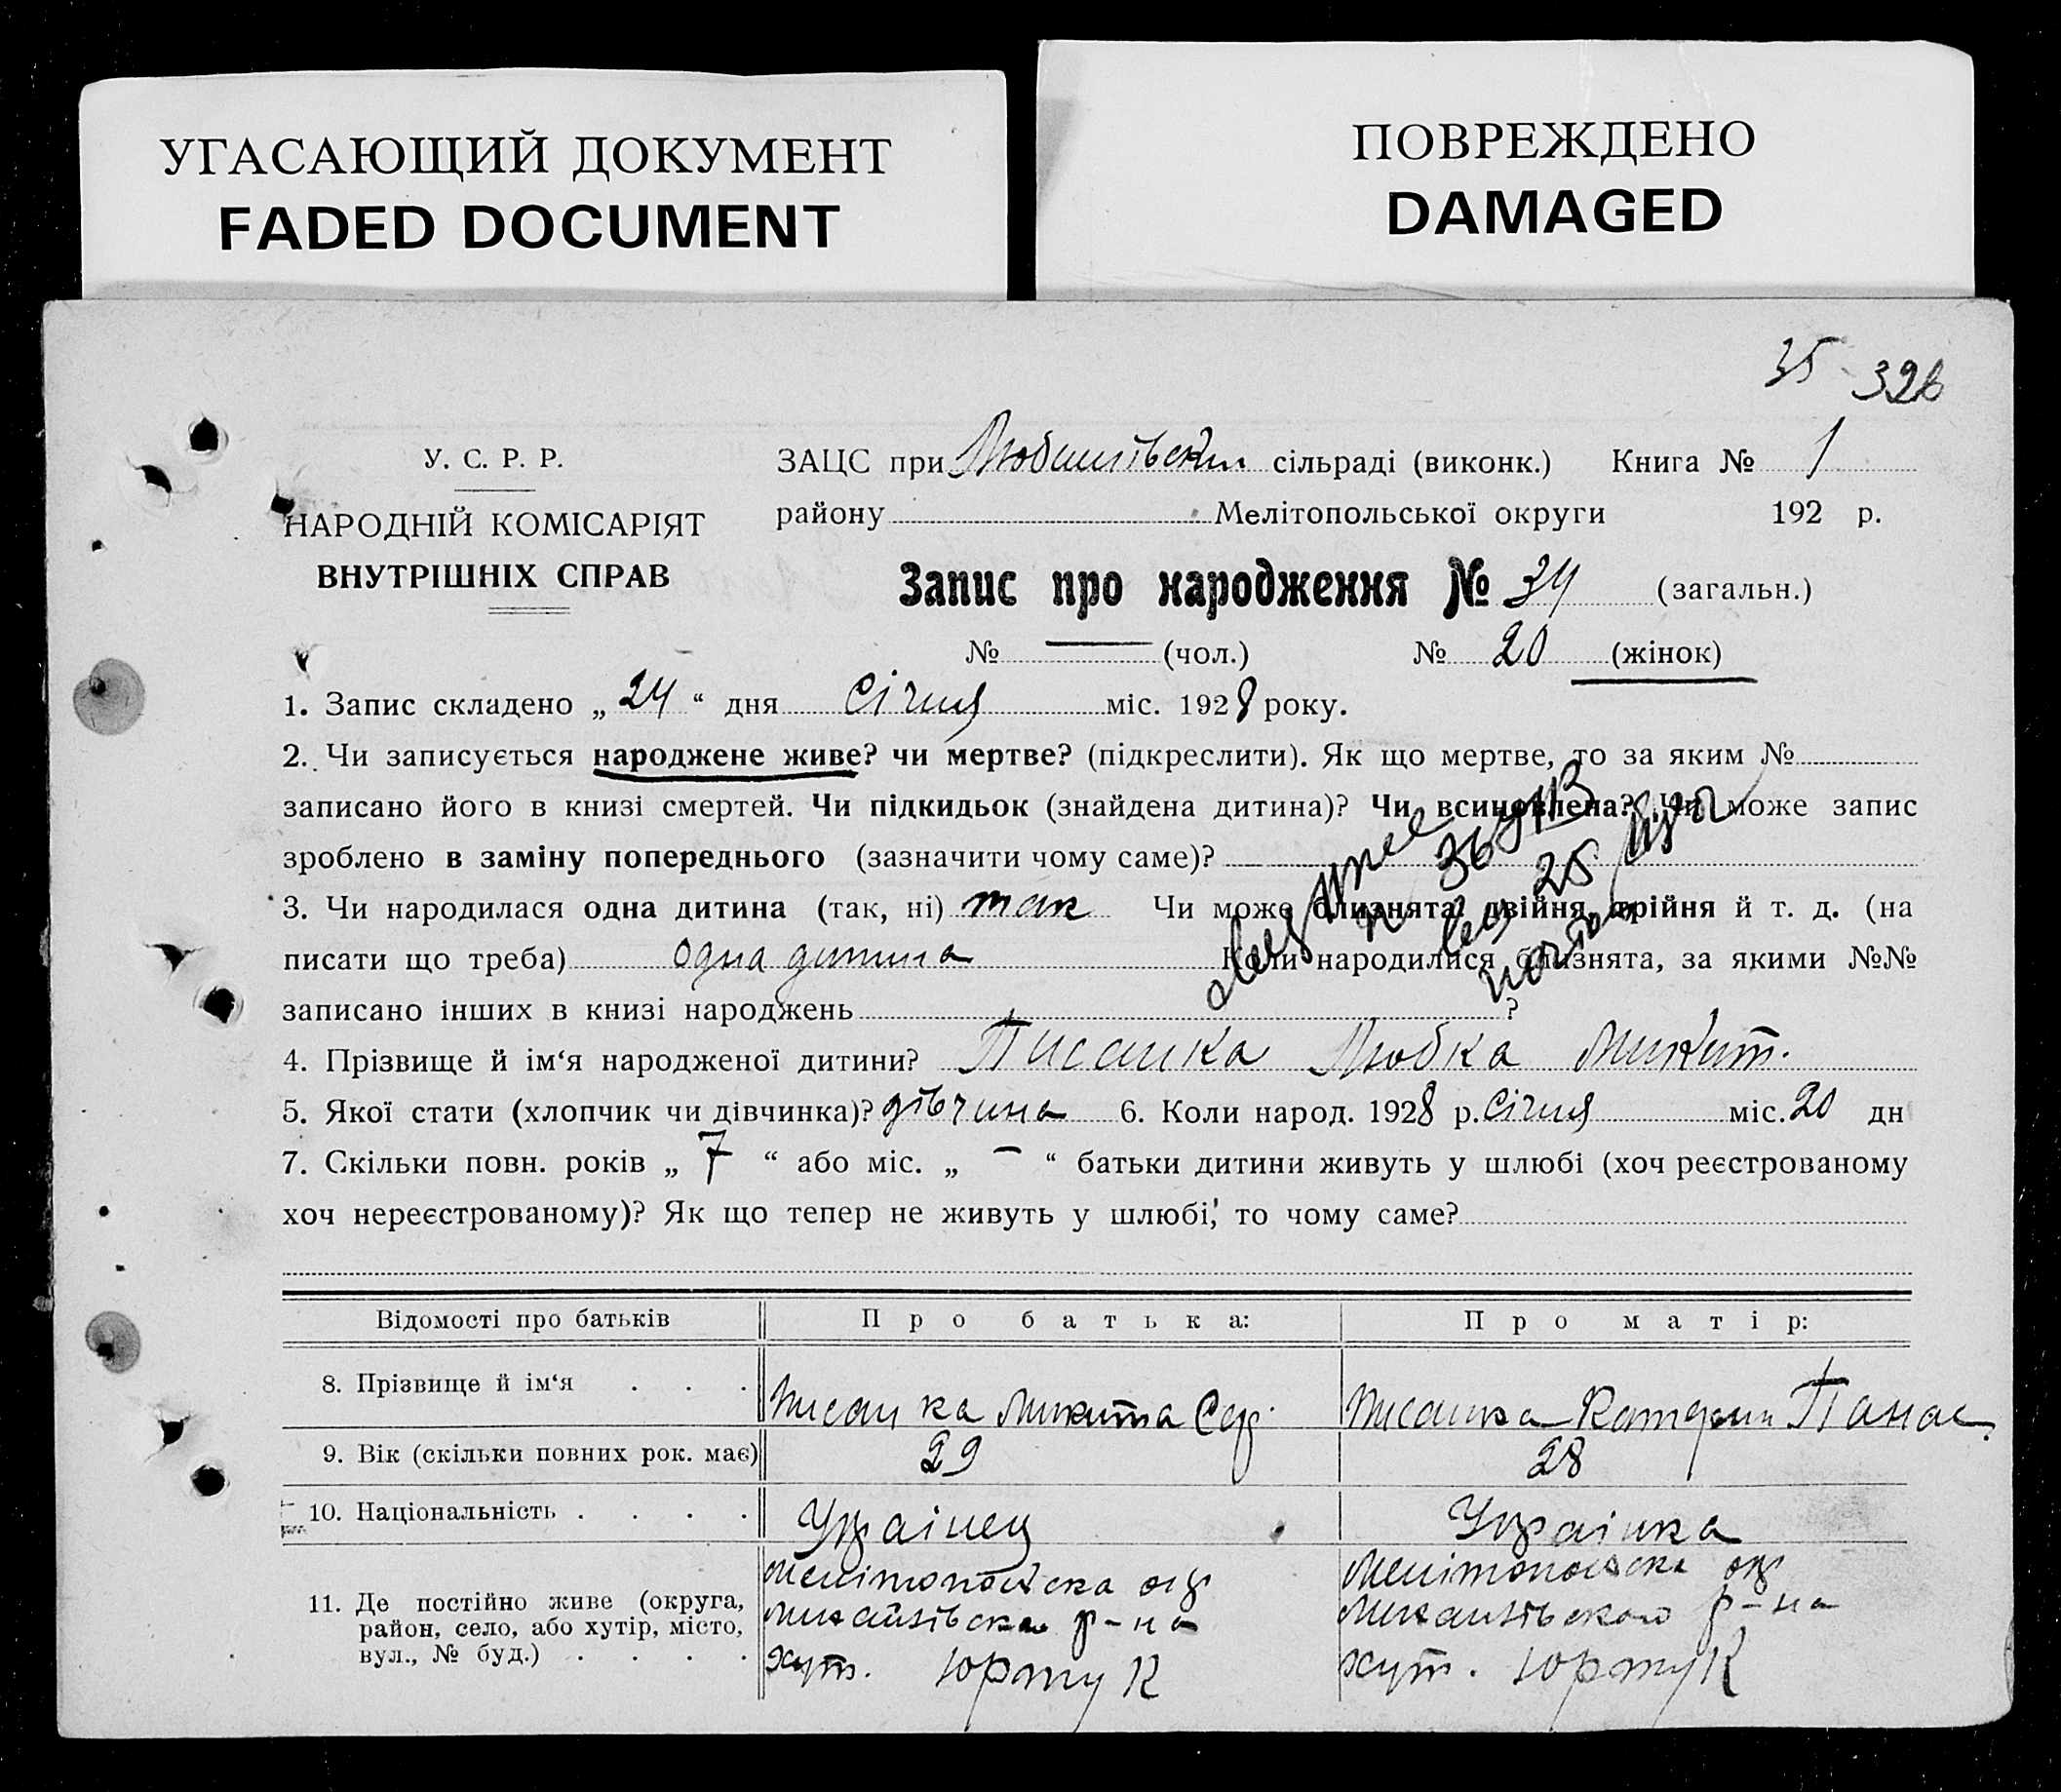 УГАСАЮЩИЙ ДОКУМЕНТ
FADED DOCUMENT
ПОВРЕЖДЕНО
DAMAGED
35 326
У. С. Р. Р.
НАРОДНІЙ КОМІСАРІЯТ
ВНУТРІШНІХ СПРАВ
ЗАЦС при сільраді (виконк.) Книга № 1
району Мелітопольської округи 192 р.
Запис про народження № 34 (загальн.)
№ — (чол.) № 20 (жінок)
1. Запис складено „ 24 “ дня Січня міс. 1928 року.
2. Чи записується народжене живе? чи мертве? (підкреслити). Як що мертве, то за яким №
записано його в книзі смертей. Чи підкидьок (знайдена дитина)? Чи всиновлена? Чи може запис
зроблено в заміну попереднього (зазначити чому саме)?
3. Чи народилася одна дитина (так, ні) так Чи може близнята: двійня, трійня й т. д. (на
писати що треба) Одна дитина Коли народилися близнята, за якими №№
записано інших в книзі народжень ?
4. Прізвище й ім‘я народженої дитини? Писанка Любка Микит.
5. Якої стати (хлопчик чи дівчинка)? дівчина 6. Коли народ. 1928 р. Січня міс. 20 дн
7. Скільки повн. років „ 7 “ або міс. „ — “ батьки дитини живуть у шлюбі (хоч реєстрованому
хоч нереєстрованому)? Як що тепер не живуть у шлюбі, то чому саме?
Відомості про батьків Про батька: Про матір:
8. Прізвище й ім‘я . . . Писанка Микита Писанка Панас.
9. Вік (скільки повних рок. має) 29 28
10. Національність . . . . Украінец Украінка
11. Де постійно живе (округа,
район, село, або хутір, місто,
вул., № буд.) . . . .
Мелітопольска окр
Михайлівского р-на
хут. Юртук
Мелітопольска окр
Михайлівского р-на
хут. Юртук